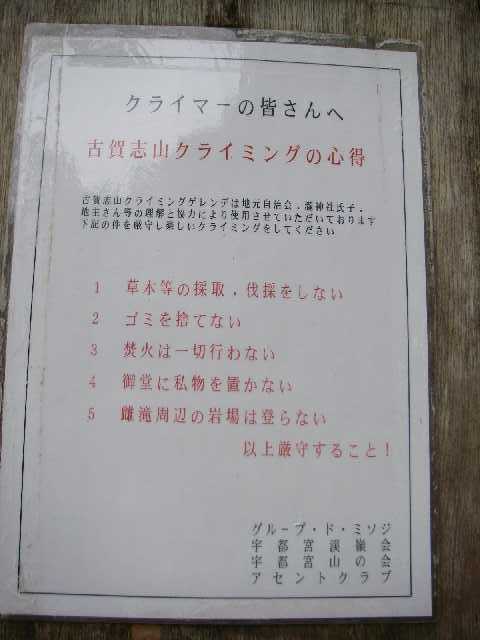 クライマーの皆さんへ
古賀志山クライミングの心得
古賀志山クライミングゲレンデは地元自治会．瀧神社氏子．
地主さん等の理解と協力により使用させていただいております
下記の件を厳守し楽しいクライミングをしてください
1 草木等の採取．伐採をしない
2 ゴミを捨てない
3 焚火は一切行わない
4 御堂に私物を置かない
5 雌滝周辺の岩場は登らない
以上厳守すること！
グループ・ド・ミソジ
宇都宮渓嶺会
宇都宮山の会
アセントクラブ